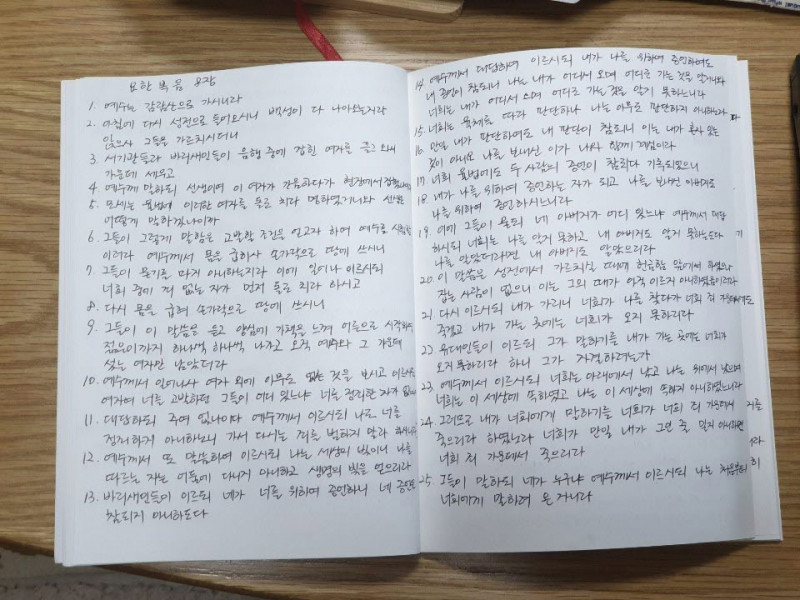 요한복음 8장
1. 예수는 감람산으로 가시니라
2. 아침에 다시 성전으로 들어오시니 백성이 다 나아오는지라
앉으사 그들을 가르치시더니
3. 서기관들과 바리새인들이 음행 중에 잡힌 여자를 끌고 와서
가운데 세우고
4. 예수께 말하되 선생이여 이 여자가 간음하다가 현장에서
5. 모세는 율법에 이러한 여자를 돌로 치라 명하였거니와 선생은
어떻게 말하겠나이까
6. 그들이 이렇게 말함은 고발할 조건을 얻고자 하여 예수를
이러라 예수께서 몸을 굽히사 손가락으로 땅에 쓰시니
7. 그들이 묻기를 마지 아니하는지라 이에 일어나 이르시되
너희 중에 죄 없는 자가 먼저 돌로 치라 하시고
8. 다시 몸을 굽혀 손가락으로 땅에 쓰시니
9. 그들이 이 말씀을 듣고 양심에 가책을 느껴 어른으로 시작하여
젊은이까지 하나씩 하나씩 나가고 오직 예수와 그 가운데
섰는 여자만 남았더라
10. 예수께서 일어나사 여자 외에 아무도 없는 것을 보시고 이르시되
여자여 너를 고발하던 그들이 어디 있느냐 너를 정죄한 자가 없느냐
11. 대답하되 주여 없나이다 예수께서 이르시되 나도 너를
정죄하지 아니하노니 가서 다시는 죄를 범하지 말라 하시니라
12. 예수께서 또 말씀하여 이르시되 나는 세상의 빛이니 나를
따르는 자는 어둠에 다니지 아니하고 생명의 빛을 얻으리라
13. 바리새인들이 이르되 네가 너를 위하여 증언하니 네 증언은
참되지 아니하도다
14. 예수께서 대답하여 이르시되 내가 나를 위하여 증언하여도
내 증언이 참되니 나는 내가 어디서 오며 어디로 가는 것을 알거니와
너희는 내가 어디서 오며 어디로 가는 것을 알지 못하느니라
15. 너희는 육체를 따라 판단하나 나는 아무도 판단하지 아니하노라
16. 만일 내가 판단하여도 내 판단이 참되니 이는 내가 혼자 있는
것이 아니오 나를 보내신 이가 나와 함께 계심이라
17. 너희 율법에도 두 사람의 증언이 참되다 기록되었으니
18. 내가 나를 위하여 증언하는 자가 되고 나를 보내신 아버지도
나를 위하여 증언하시느니라
19. 이에 그들이 묻되 네 아버지가 어디 있느냐 예수께서 대답
하시되 너희는 나를 알지 못하고 내 아버지도 알지 못하는도다
나를 알았더라면 내 아버지도 알았으리라
20. 이 말씀은 성전에서 가르치실 때에 헌금함 앞에서 하셨으나
잡는 사람이 없으니 이는 그의 때가 아직 이르지 아니하였음이러라
21. 다시 이르시되 내가 가리니 너희가 나를 찾다가 너희 죄 가운데서
죽겠고 내가 가는 곳에는 너희가 오지 못하리라
22. 유대인들이 이르되 그가 말하기를 내가 가는 곳에는 너희가
오지 못하리라 하니 그가 자결하려는가
23. 예수께서 이르시되 너희는 아래에서 났고 나는 위에서 났으며
너희는 이 세상에 속하였고 나는 이 세상에 속하지 아니하였느니라
24. 그러므로 내가 너희에게 말하기를 너희가 너희 죄 가운데서
죽으리라 하였노라 너희가 만일 내가 그인 줄 믿지 아니하면
너희 죄 가운데서 죽으리라
25. 그들이 말하되 네가 누구냐 예수께서 이르시되 나는 처음부터
너희에게 말하여 온 자니라